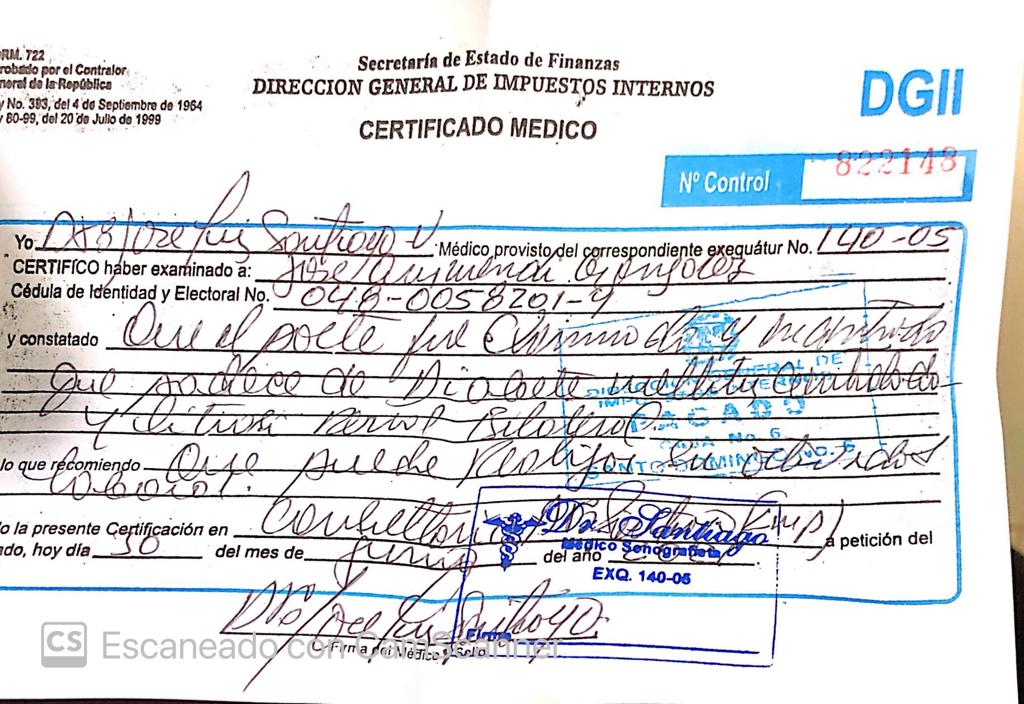 RM. 722
robado por el Contralor
neral de la República
y No. 393, del 4 de Septiembre de 1964
y 80-99, del 20 de Julio de 1999
Secretaría de Estado de Finanzas
DIRECCION GENERAL DE IMPUESTOS INTERNOS
CERTIFICADO MEDICO
DGII
Nº Control 822148
Yo Jose Luis Santiago Médico provisto del correspondiente exequátur No. 140-05
CERTIFICO haber examinado a: Jose
Cédula de Identidad y Electoral No. 048-0058201-4
y constatado Que el pcte fue y encontrado
Que padece de Diabete mellitu Controlado
y Litiasi Renal Bilateral
lo que recomiendo Que puede Realizar su actividades
laboral.
o la presente Certificación en a petición del
ado, hoy día 30 del mes de Junio del año
DIRECCION GENERAL DE
IMPUESTOS INTERNOS
PAGADO
CAJA No. 6
SANTO DOMINGO NO. 6
Dr. Santiago
Médico Sonografista
EXQ. 140-05
Firma
Jose Luis Santiago
Firma del Médico y Sello
CS Escaneado con CamScanner